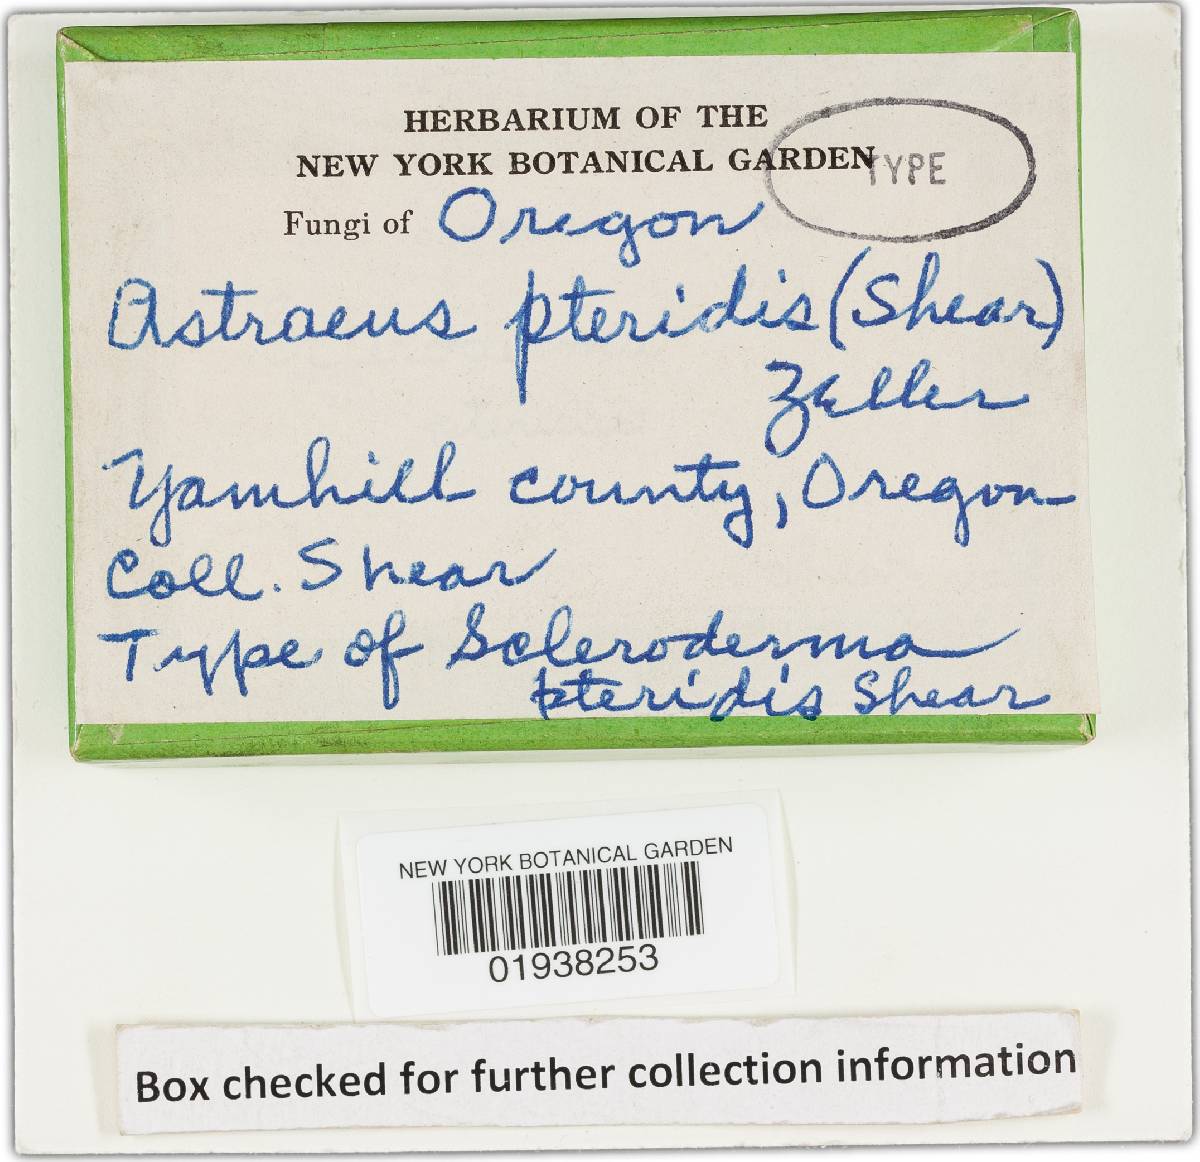 HERBARIUM OF THE
NEW YORK BOTANICAL GARDEN
TYPE
Fungi of Oregon
Astraeus pteridis (Shear)
Zeller
Yamhill county, Oregon
Coll. Shear
Type of Scleroderma
pteridis Shear
NEW YORK BOTANICAL GARDEN
01938253
Box checked for further collection information